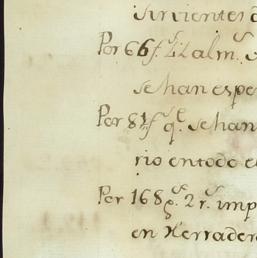 sirvientes
Por 66f.s 22 alm.s
se han espe
Por 81f.s q.e se han
rio en todo e
Por 168p.s 2 r.s imp
en Herrader